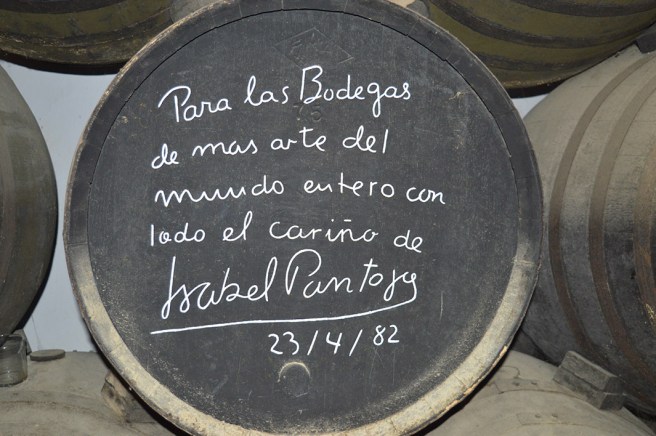 Para las Bodegas
de mas arte del
mundo entero con
todo el cariño de
Isabel Pantoja
23/4/82